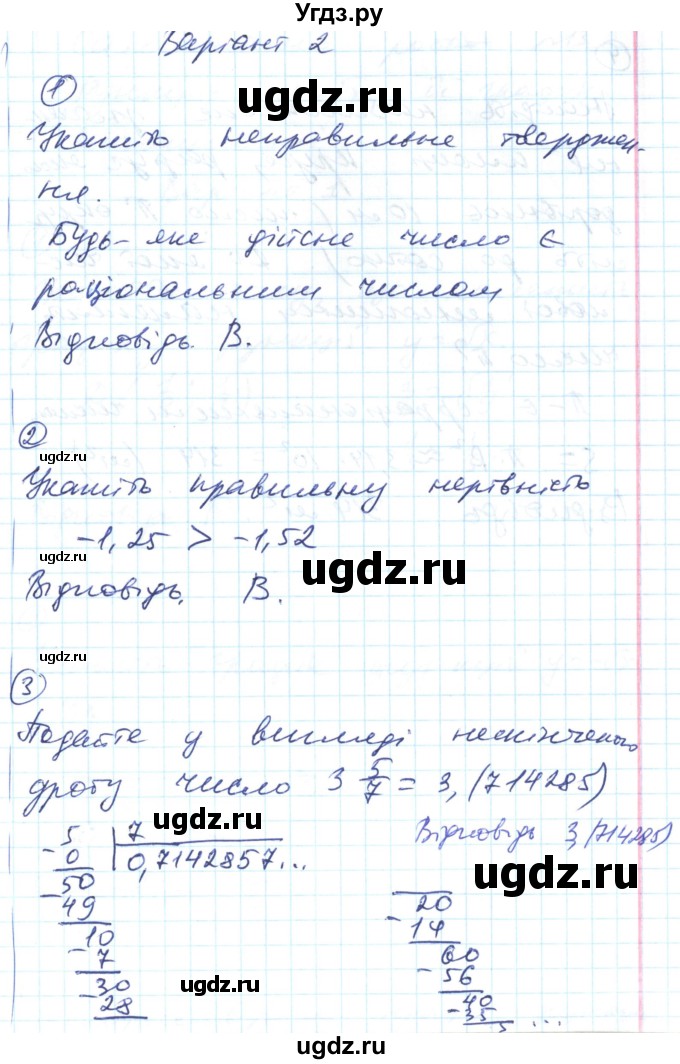 Угдз.ру
Варіант 2
1
ugdz.ru
Укажіть неправильне тверджен-
ня.
Будь-яке дійсне число є
раціональним числом
Відповідь. В.
2
ugdz.ru
Укажіть правильну нерівність
-1,25 > -1,52
ugdz.ru
ugdz.ru
Відповідь. В.
ugdz.ru
3
Подайте у вигляді нескінченого
дробу число 3 5/7 = 3,(714285)
Відповідь 3,(714285)
ugdz.ru
- 5 | 7
0 | 0,7142857...
ugdz.ru
50
- 49
10
- 7
30
- 28
20
- 14
60
- 56
40
- 35
5 ...
ugdz.ru